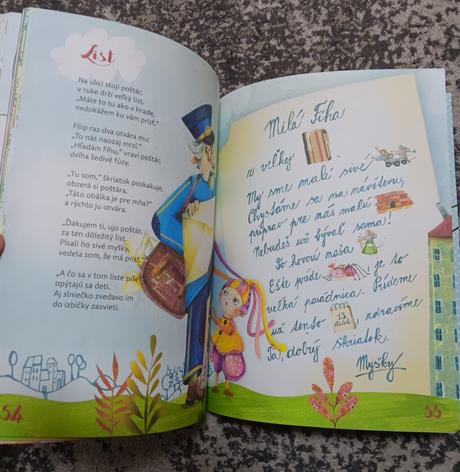 List
Na ulici stojí poštár,
v ruke drží veľký list.
„Máte to tu ako v hrade,
nedokážem ku vám prísť.“
Filip raz-dva otvára mu:
„To nás naozaj mrzí.“
„Hľadám Fíhu,“ vraví poštár,
dvíha šedivé fúzy.
„Tu som,“ škriatok poskakuje,
obzerá si poštára.
„Táto obálka je pre mňa?“
a rýchlo ju otvára.
„Ďakujem ti, ujo poštár,
za ten dôležitý list.
Písali ho sivé myšky,
vedela som, že má prísť.“
„A čo sa v tom liste píše?“
opýtajú sa deti.
Aj slniečko zvedavo im
do izbičky zasvieti.
54
Milá Fíha
z veľkej
My sme malé sivé
Chystáme sa na návštevu,
priprav pre nás malú
Nebudeš už bývať sama!
To hovorí naša
Ešte príde je to
veľká parádnica. Prídeme
už tento 13 zdravíme
Ťa, dobrý škriatok.
Myšky
55